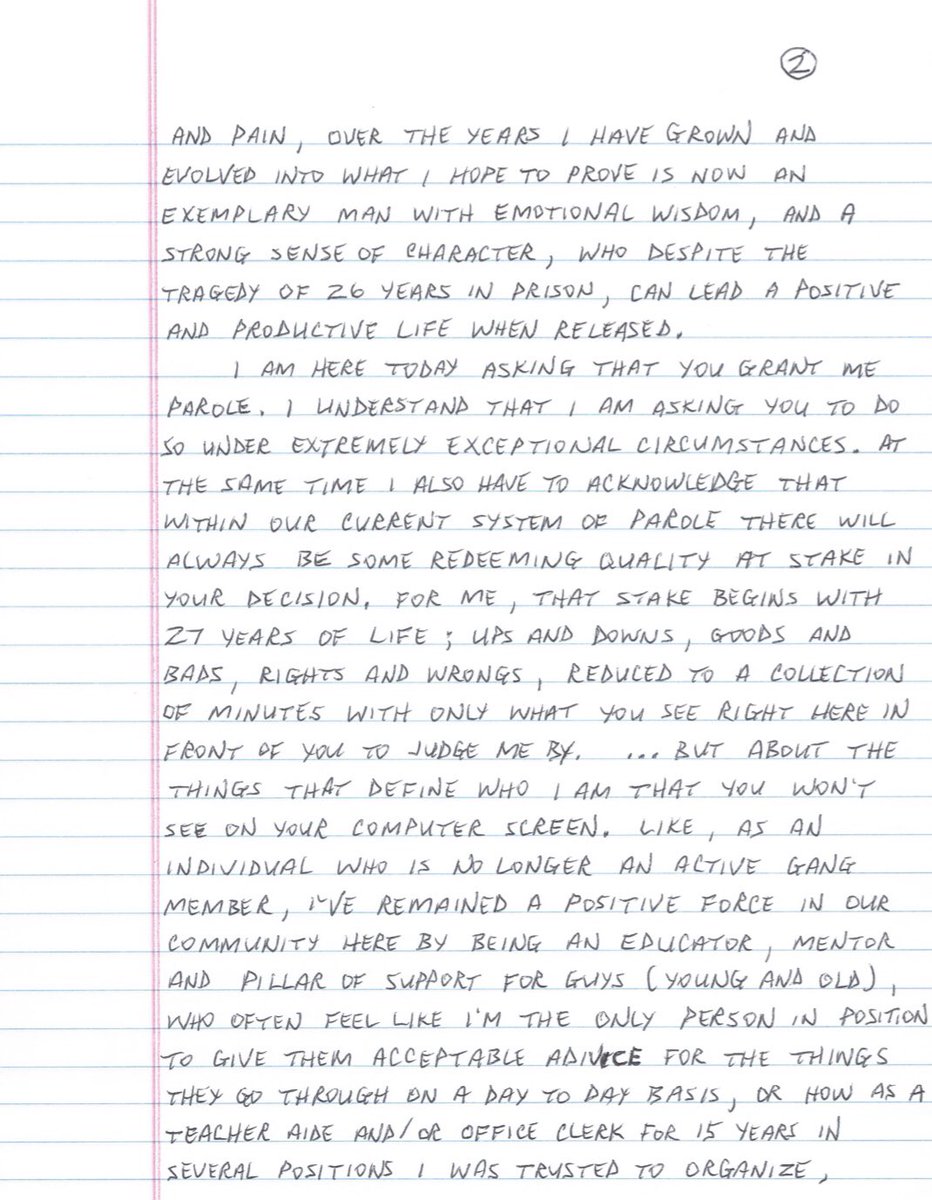 2
AND PAIN, OVER THE YEARS I HAVE GROWN AND
EVOLVED INTO WHAT I HOPE TO PROVE IS NOW AN
EXEMPLARY MAN WITH EMOTIONAL WISDOM, AND A
STRONG SENSE OF CHARACTER, WHO DESPITE THE
TRAGEDY OF 26 YEARS IN PRISON, CAN LEAD A POSITIVE
AND PRODUCTIVE LIFE WHEN RELEASED.
I AM HERE TODAY ASKING THAT YOU GRANT ME
PAROLE. I UNDERSTAND THAT I AM ASKING YOU TO DO
SO UNDER EXTREMELY EXCEPTIONAL CIRCUMSTANCES. AT
THE SAME TIME I ALSO HAVE TO ACKNOWLEDGE THAT
WITHIN OUR CURRENT SYSTEM OF PAROLE THERE WILL
ALWAYS BE SOME REDEEMING QUALITY AT STAKE IN
YOUR DECISION. FOR ME, THAT STAKE BEGINS WITH
27 YEARS OF LIFE; UPS AND DOWNS, GOODS AND
BADS, RIGHTS AND WRONGS, REDUCED TO A COLLECTION
OF MINUTES WITH ONLY WHAT YOU SEE RIGHT HERE IN
FRONT OF YOU TO JUDGE ME BY. ...BUT ABOUT THE
THINGS THAT DEFINE WHO I AM THAT YOU WON'T
SEE ON YOUR COMPUTER SCREEN. LIKE, AS AN
INDIVIDUAL WHO IS NO LONGER AN ACTIVE GANG
MEMBER, I'VE REMAINED A POSITIVE FORCE IN OUR
COMMUNITY HERE BY BEING AN EDUCATOR, MENTOR
AND PILLAR OF SUPPORT FOR GUYS (YOUNG AND OLD),
WHO OFTEN FEEL LIKE I'M THE ONLY PERSON IN POSITION
TO GIVE THEM ACCEPTABLE ADIVICE FOR THE THINGS
THEY GO THROUGH ON A DAY TO DAY BASIS, OR HOW AS A
TEACHER AIDE AND/OR OFFICE CLERK FOR 15 YEARS IN
SEVERAL POSITIONS I WAS TRUSTED TO ORGANIZE,